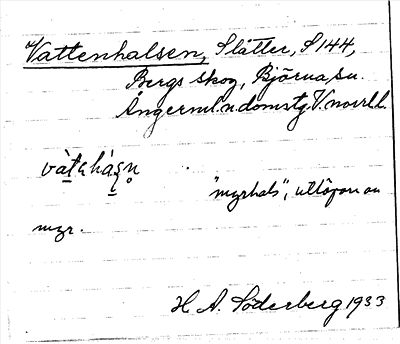 Vattenhalsen, Slåtter, S144,
Bergs skog, Björna sn.
Ångerml. n. domstg. V. norrl. l.
"myrhals", utlöpare av
myr.
H A. Söderberg 1933